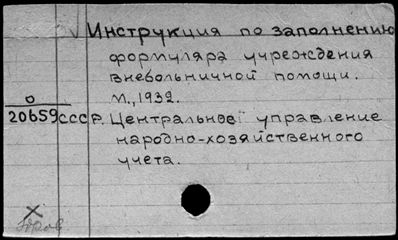 Инструкция по заполнению
формуляра учреждения
внебольничной помощи.
М., 1932.
0
20659 СССР. Центральное управление
народно-хозяйственного
учета.